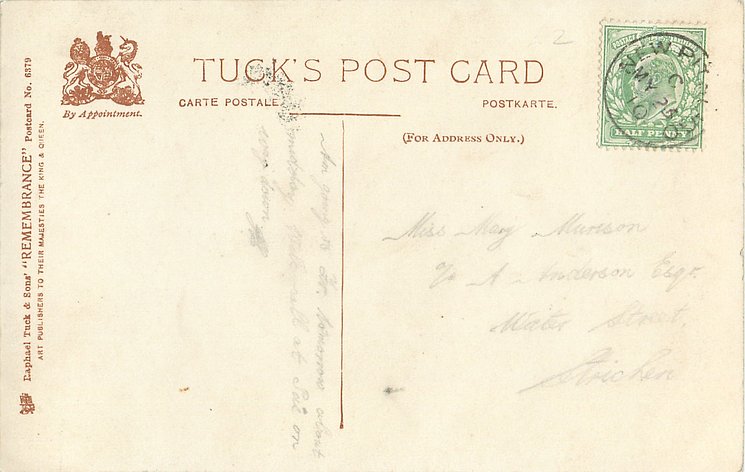 By Appointment.
TUCK'S POST CARD
CARTE POSTALE
POSTKARTE.
(FOR ADDRESS ONLY.)
Raphael Tuck & Sons' "REMEMBRANCE" Postcard No. 6379
ART PUBLISHERS TO THEIR MAJESTIES THE KING & QUEEN.
HALF PENNY
C
MY 25
10
2
Am going to tomorrow about
midday. Will call at on
way down
Miss Mary Murison
A Anderson Esqr.
Water Street.
Strichen